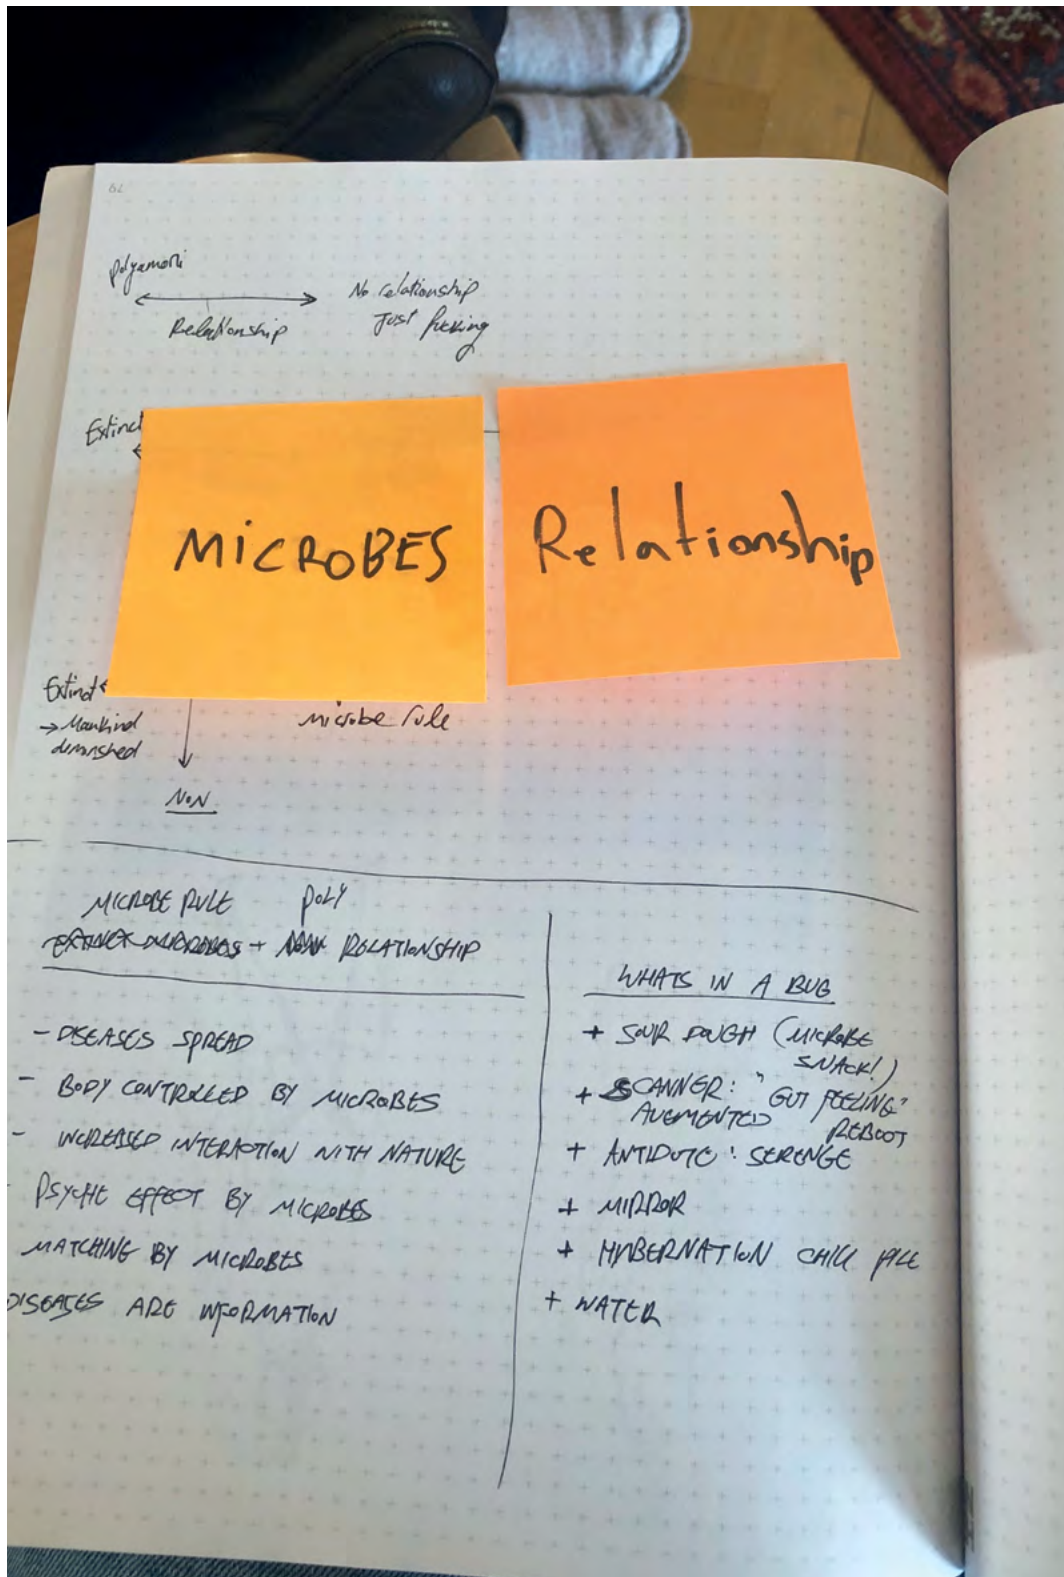 62
polyamori
Relationship
No relationship
Just fucking
Extinct
MiCROBES
Relationship
Extinct
→ Mankind
diminished
microbe rule
NON
MICROBE RULE POLY
EXTINCT MICROBES + NON RELATIONSHIP
- DISEASES SPREAD
- BODY CONTROLLED BY MICROBES
- INCREASED INTERACTION WITH NATURE
- PSYCHE EFFECT BY MICROBES
MATCHING BY MICROBES
DISEASES ARE INFORMATION
WHATS IN A BUG
+ SOUR DOUGH (MICROBE
SNACK!)
+ SCANNER: "GUT FEELING"
AUGMENTED REBOOT
+ ANTIDOTE: SERENGE
+ MIRROR
+ HYBERNATION CHILL PILL
+ WATER